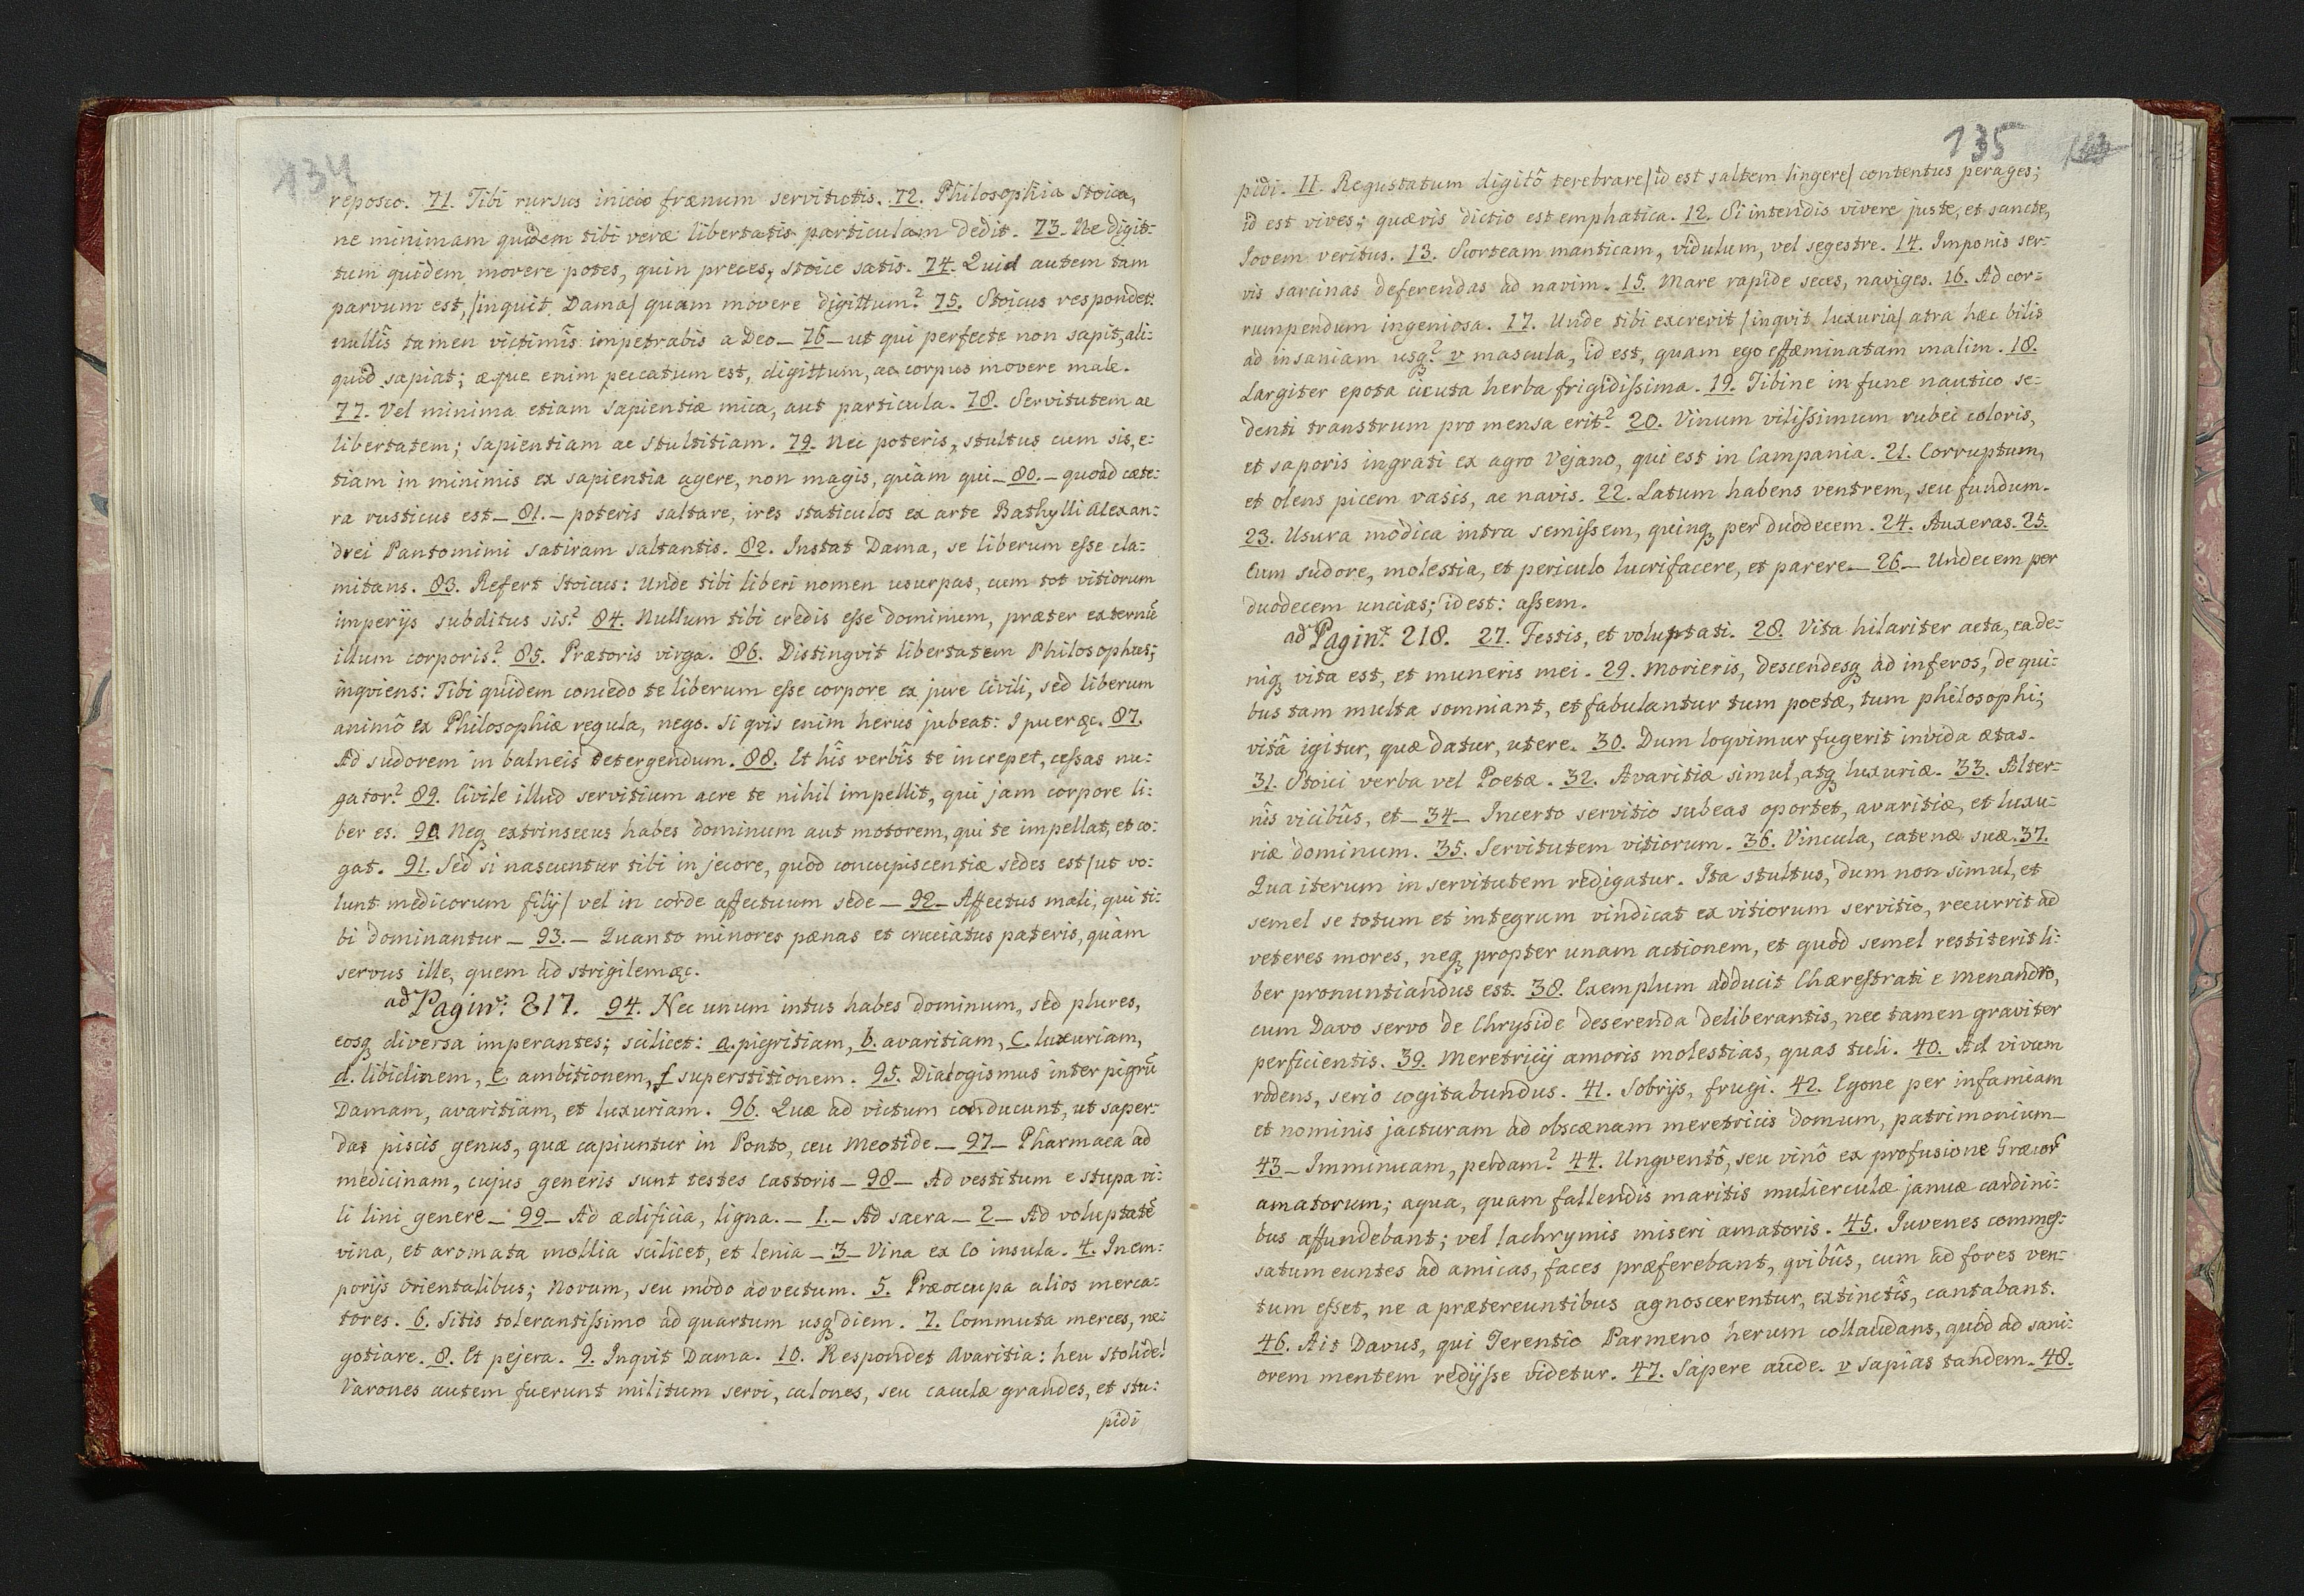 134
reposco. 71. Tibi rursus inicio frænum servitutis. 72. Philosophia Stoica,
ne minimam quidem tibi veræ libertatis particulam dedit. 73. Ne digit:
tum quidem movere potes, quin preces, stoice satis. 74. Quid autem tam
parvum est, /inquit Dama/ quam movere digittum? 75. Stoicus respondet:
nullîs tamen victimîs impetrabis a Deo_ 76_ ut qui perfecte non sapit, ali:
quid sapiat; æque enim peccatum est, digittum, ac corpus movere male.
77. Vel minima etiam sapientiæ mica, aut particula. 78. Servitutem ac
libertatem; sapientiam ac stultitiam. 79. Nec poteris, stultus cum sis, e:
tiam in minimis ex sapientia agere, non magis, quàm qui_ 80._ quoad cæte:
ra rusticus est_ 81._ poteris saltare, ires staticulos ex arte Bathylli Alexan:
drei Pantomimi satiram saltantis. 82. Instat Dama, se liberum eſse cla:
mitans. 83. Refert Stoicus: Unde tibi liberi nomen usurpas, cum tot vitiorum
imperijs subditus sis? 84. Nullum tibi credis eſse dominum, præter externũ
illum corporis? 85. Prætoris virga. 86. Distingvit libertatem Philosophus;
inqviens: Tibi quidem concedo te liberum eſse corpore ex jure Civili, sed liberum
animô ex Philosophiæ regula, nego. Si qvis enim herus jubeat: I puer &c. 87.
Ad sudorem in balneis detergendum. 88. Et hîs verbîs te increpet, ceſsas nu:
gator? 89. Civile illud servitium acre te nihil impellit, qui jam corpore li:
ber es. 90. Neq̃ extrinsecus habes dominum aut motorem, qui te impellat, et co:
gat. 91. Sed si nascuntur tibi in jecore, quod concupiscentiæ sedes est /ut vo:
lunt medicorum filij/ vel in corde affectuum sede_ 92_ Affectus mali, qui ti:
bi dominantur_ 93._ Quanto minores pænas et cruciatus pateris, quàm
servus ille, quem ad strigilem &c.
ad Pagin: 217. 94. Nec unum intus habes dominum, sed plures,
eosq̃ diversa imperantes; scilicet: a. pigritiam, b. avaritiam, c. luxuriam,
d. libidinem, e. ambitionem, f superstitionem. 95. Dialogismus inter pigrũ
Damam, avaritiam, et luxuriam. 96. Quæ ad victum conducunt, ut saper:
das piscis genus, quæ capiuntur in Ponto, ceu Meotide_ 97_ Pharmaca ad
medicinam, cujus generis sunt testes Castoris_ 98_ Ad vestitum e stupa vi:
li lini genere_ 99_ Ad ædificia, ligna._ 1._ Ad sacra_ 2_ Ad voluptatẽ
vina, et aromata mollia scilicet, et lenia_ 3_ Vina ex Co insula. 4. In em:
porijs Orientalibus; Novum, seu modo advectum. 5. Præoccupa alios merca:
tores. 6. Sitis tolerantiſsimo ad quartum usq̃ diem. 7. Commuta merces, ne:
gotiare. 8. Et pejera. 9. Inqvit Dama. 10. Respondet Avaritia: heu stolide!
Varones autem fuerunt militum servi, calones, seu caculæ grandes, et stu:
pidi
135
pidi. 11. Regustatum digitô terebrare /id est saltem lingere/ contentus perages;
id est vives; quævis dictio est emphatica. 12. Si intendis vivere juste, et sancte,
Jovem veritus. 13. Scorteam manticam, vidulum, vel segestre. 14. Imponis ser:
vis sarcinas deferendas ad navim. 15. Mare rapide seces, naviges. 16. Ad cor:
rumpendum ingeniosa. 17. Unde tibi excrevit /inqvit luxuria/ atra hæc bilis
ad insaniam usq̃? v mascula, id est, quam ego effæminatam malim. 18.
Largiter epota cicuta herba frigidiſsima. 19. Tibine in fune nautico se:
denti transtrum pro mensa erit? 20. Vinum viliſsimum rubei coloris,
et saporis ingrati ex agro Vejano, qui est in Campania. 21. Corruptum,
et olens picem vasis, ac navis. 22. Latum habens ventrem, seu fundum.
23. Usura modica intra semiſsem, quinq̃ per duodecem. 24. Auxeras. 25.
Cum sudore, molestia, et periculo lucrifacere, et parere._ 26_ Undecem per
duodecem uncias; id est: aſsem.
ad Pagin: 218. 27. Festis, et voluptati. 28. Vita hilariter acta, ea de:
niq̃ vita est, et muneris mei. 29. Morieris, descendesq̃ ad inferos, de qui:
bus tam multa somniant, et fabulantur tum poetæ, tum philosophi;
vitâ igitur, quæ datur, utere. 30. Dum loqvimur fugerit invida ætas.
31. Stoici verba vel Poetæ. 32. Avaritiæ simul, atq̃ luxuriæ. 33. Alter:
nîs vicibûs, et_ 34_ Incerto servitio subeas oportet, avaritiæ, et luxu:
riæ dominum. 35. Servitutem vitiorum. 36. Vincula, catenæ suæ. 37.
Qua iterum in servitutem redigatur. Ita stultus, dum non simul, et
semel se totum et integrum vindicat ex vitiorum servitio, recurrit ad
veteres mores, neq̃ propter unam actionem, et quod semel restiterit li:
ber pronuntiandus est. 38. Exemplum adducit Chærestrati e Menandro,
cum Davo servo de Chryside deserenda deliberantis, nec tamen graviter
perficientis. 39. Meretricij amoris molestias, quas tuli. 40. Ad vivum
rodens, serio cogitabundus. 41. Sobrijs, frugi. 42. Egone per infamiam
et nominis jacturam ad obscænam meretricis domum, patrimonium_
43_ Imminuam, perdam? 44. Ungventô, seu vinô ex profusione Græcor̃
amatorum; aqua, quam fallendis maritis mulierculæ januæ cardini:
bus affundebant; vel lachrymis miseri amatoris. 45. Iuvenes commes:
satum euntes ad amicas, faces præferebant, qvibûs, cum ad fores ven:
tum eſset, ne a prætereuntibus agnoscerentur, extinctîs, cantabant.
46. Ait Davus, qui Terentio Parmeno herum collaudans, quòd ad sani:
orem mentem redijſse videtur. 47. Sapere aude. v sapias tandem. 48.